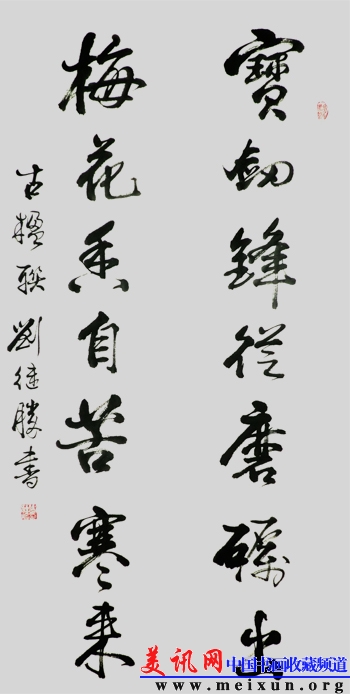 寶劍鋒從磨礪出
梅花香自苦寒來
古楹联 劉继勝書
美讯网 中国书画收藏频道
www.meixun.org